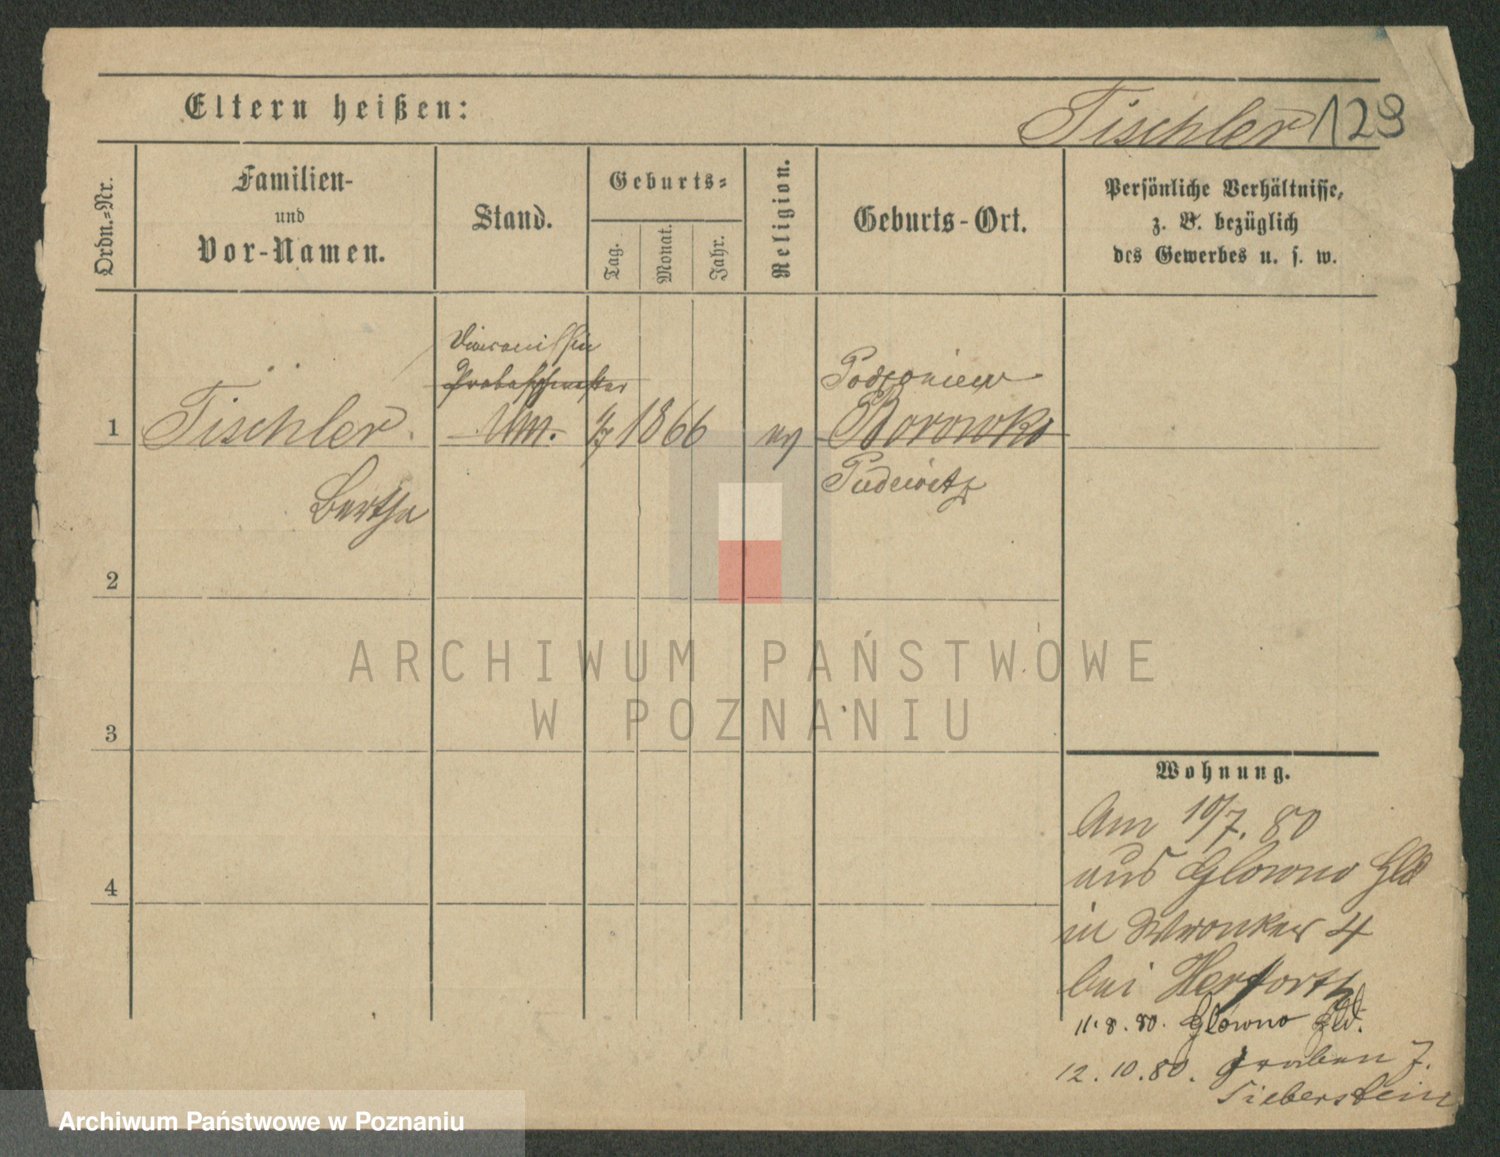 Eltern heißen:
Tischler 129
Ordn.=Nr.
Familien-
und
Vor-Namen.
Stand.
Geburts=
Tag.
Monat.
Jahr.
Religion.
Geburts-Ort.
Persönliche Verhältnisse,
z. B. bezüglich
des Gewerbes u. s. w.
Diaconissin
Probeschwester
Podgoniew
1 Tischler 1866 ev Borowko
Pudewitz
Bertha
2
3
4
Wohnung.
Am 10/7. 80
aus Glowno Hld
in Wronker 4
bei Herforth
11.8.80. Glowno Hld.
12.10.80. Graben 7.
Sieberstein
ARCHIWUM PAŃSTWOWE
W POZNANIU
Archiwum Państwowe w Poznaniu